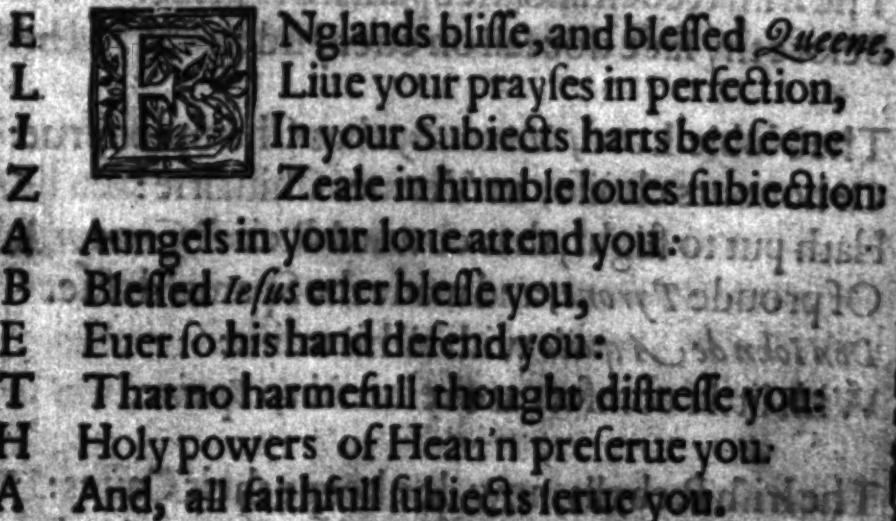 E ENglands blisse, and blessed Queene,
L Liue your prayſes in perfection,
I In your Subiects harts bee ſeene
Z Zeale in humble loues ſubiection:
A Aungels in your loue attend you:
B Bleſſed Ieſus euer bleſſe you,
E Euer ſo his hand defend you:
T That no harmefull thought diſtreſſe you:
H Holy powers of Heau'n preſerue you:
A And, all faithfull ſubiects ſerue you.